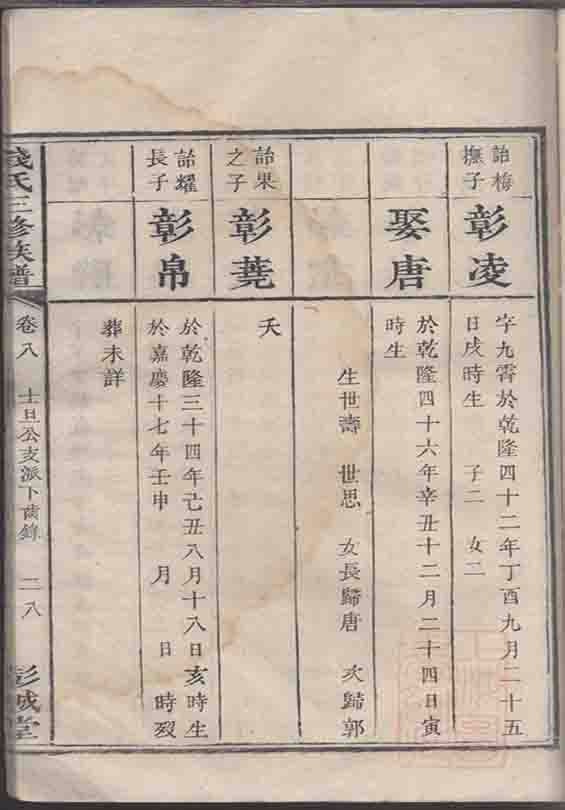 詒梅
撫子
彰凌
字九霄於乾隆四十二年丁酉九月二十五
日戌時生 子二 女二
娶唐
於乾隆四十六年辛丑十二月二十四日寅
時生
生世壽 世思 女長歸唐 次歸郭
詒果
之子
彰蕘
夭
詒耀
長子
彰帛
於乾隆三十四年己丑八月十八日亥時生
於嘉慶十七年壬申 月 日 時歿
葬未詳
錢氏三修族譜
卷八
士旦公支派下齒錄
二八
彭城堂